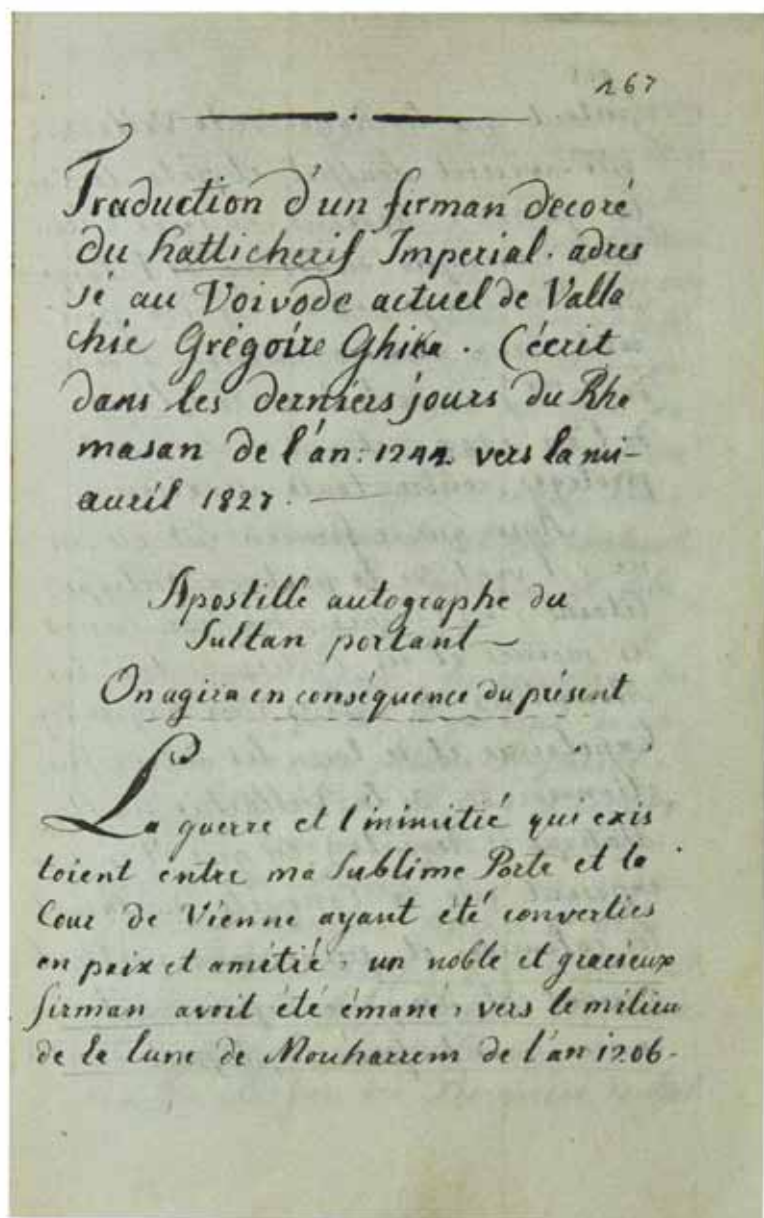 267
Traduction d'un firman decoré
du hattichérif Imperial. adres
sé au Voivode actuel de Valla
chie Grégoire Ghika. (écrit
dans les derniers jours du Rha
masan de l'an: 1244. vers la mi-
avril 1827.
Apostille autographe du
Sultan portant
On agira en conséquence du présent
La guerre et l'inimitié qui exis
toient entre ma Sublime Porte et la
Cour de Vienne ayant été converties
en paix et amitié, un noble et gracieux
firman avoit été émané, vers le milieu
de la lune de Mouharrem de l'an 1206-